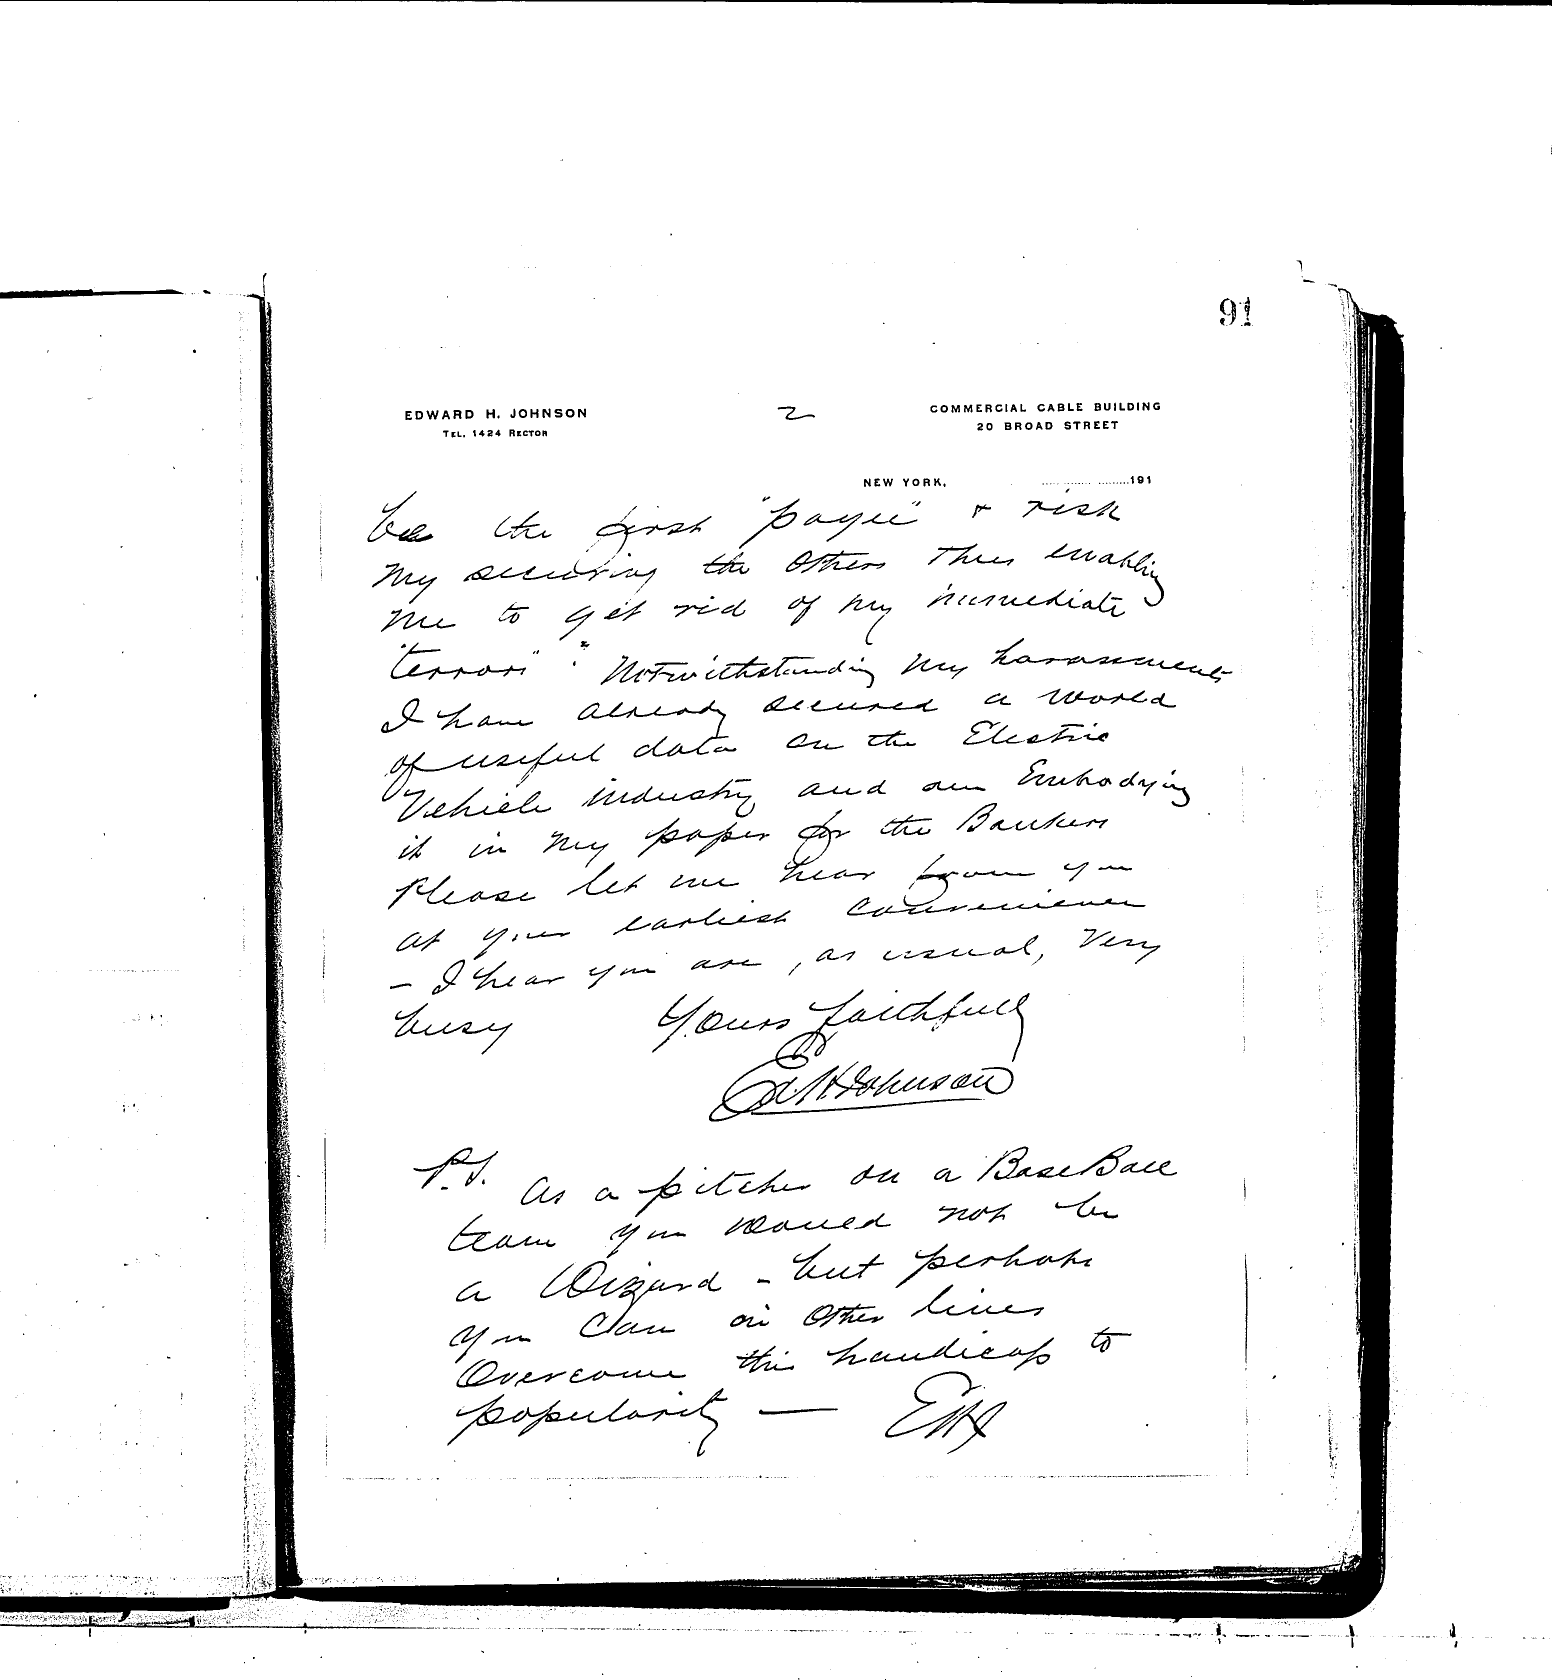 91
EDWARD H. JOHNSON
TEL. 1424 RECTOR
2
COMMERCIAL CABLE BUILDING
20 BROAD STREET
NEW YORK, 191
be the first "payee" & risk
my securing the others thus enabling
me to get rid of my immediate
"terrors". Notwithstanding my harassments
I have already secured a world
of useful data on the Electric
Vehicle industry and am Embodying
it in my paper for the Bankers
Please let me hear from you
at your earliest convenience
– I hear you are, as usual, very
busy Yours faithfully
Ed. H Johnson
P.S. As a pitcher on a Base Ball
team you would not be
a Wizard – but perhaps
you can in other lines
Overcome this handicap to
popularity — EHJ